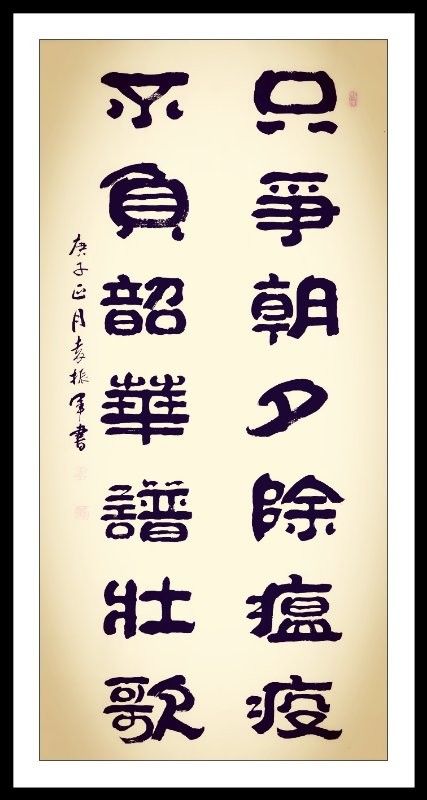 只爭朝夕除瘟疫
不負韶華譜壯歌
庚子正月袁振軍書